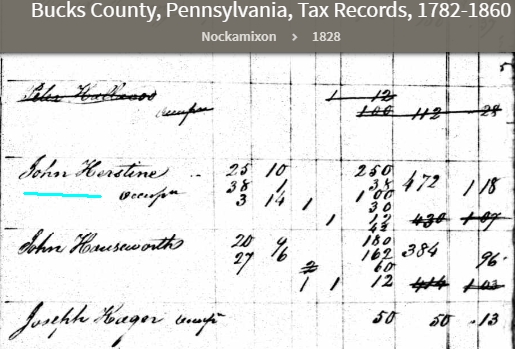 Bucks County, Pennsylvania, Tax Records, 1782-1860
Nockamixon > 1828
5
Peter 1 12
occup 100 112 28
John Herstine 25 10 250
38 1 38 472 1 18
occup 3 14 1 100
30
1 12 430 1 07
42
John Hauseworth 20 9 180
27 6 162 384 96
2 60
1 1 12 414 1 03
Joseph Hager occup 50 50 13